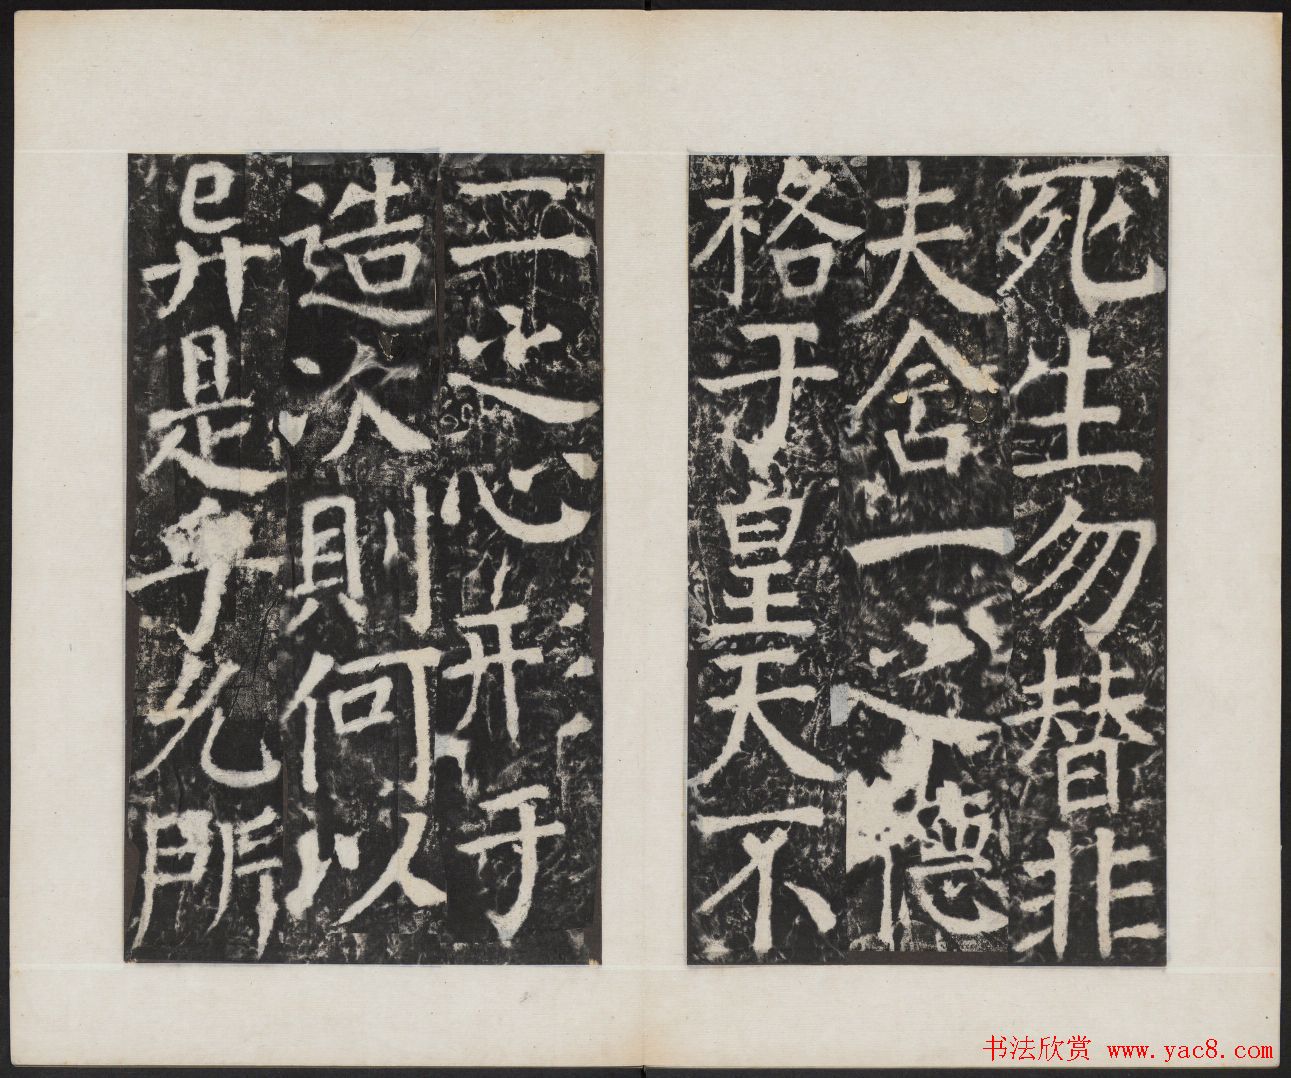 死生勿替非
夫含一之德
格于皇天不
二之心形于
造次則何以
异是乎凡所
书法欣赏 www.yac8.com